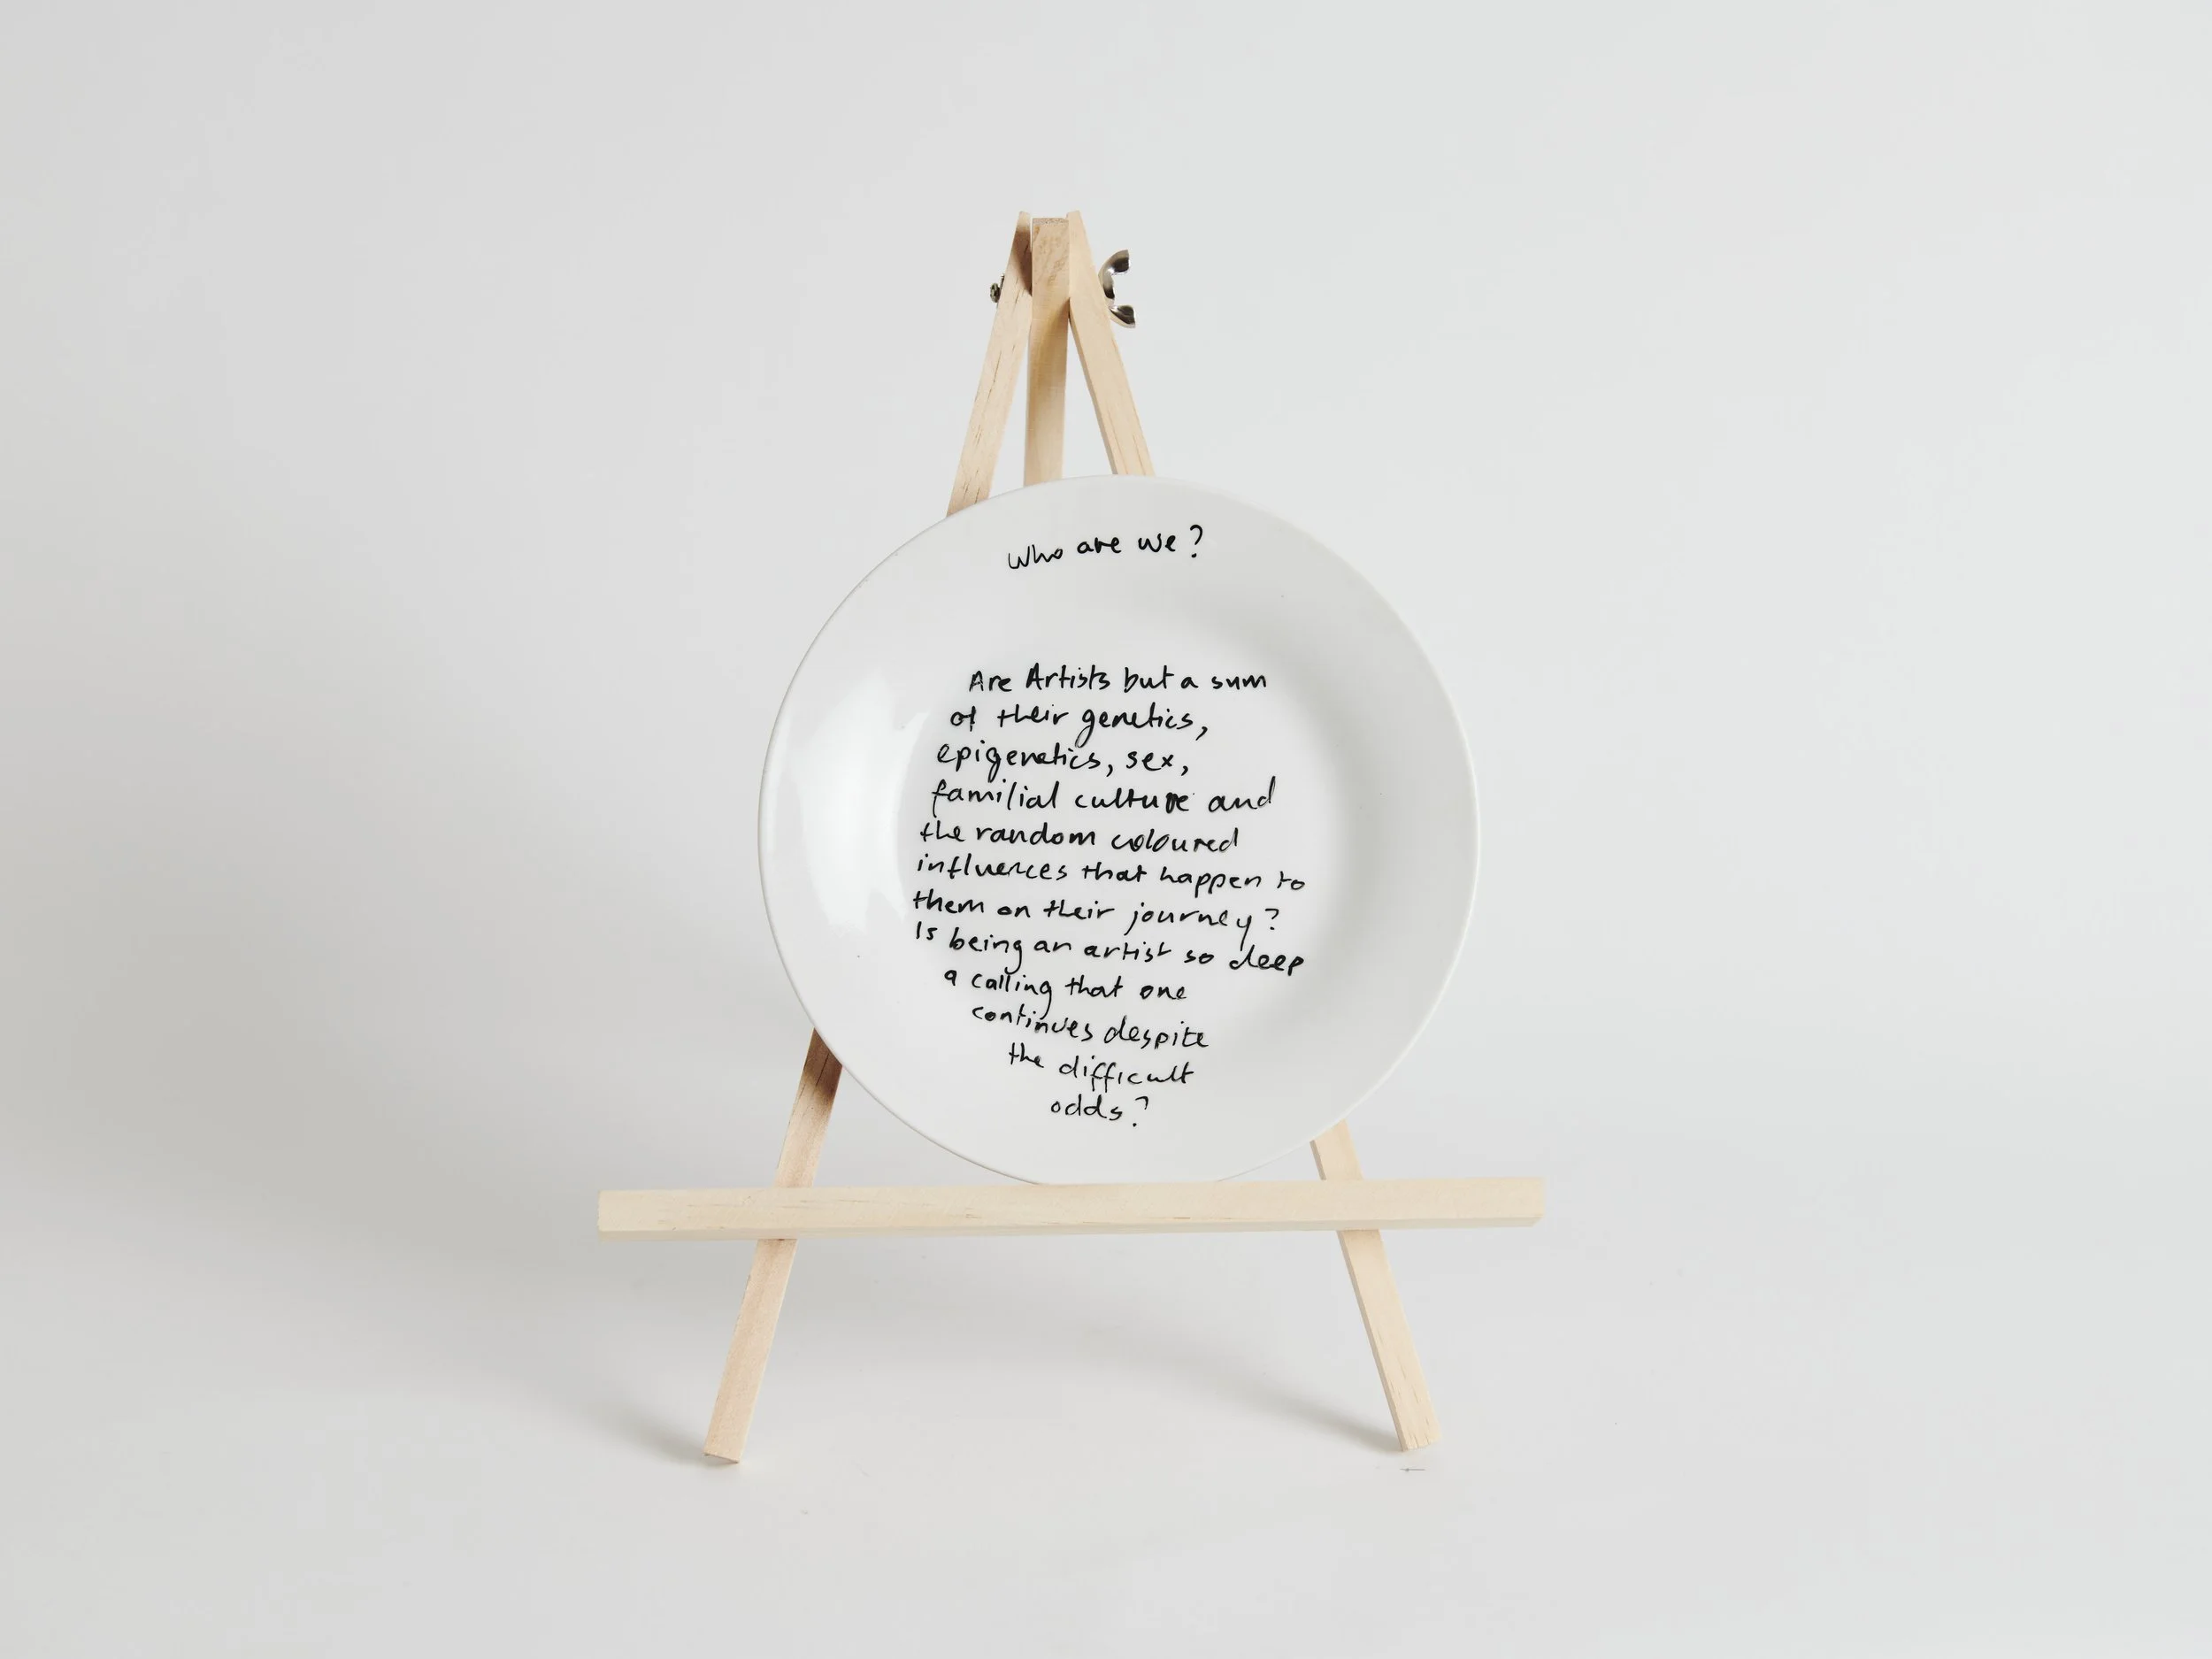 Who are we?
Are Artists but a sum
of their genetics,
epigenetics, sex,
familial culture and
the random coloured
influences that happen to
them on their journey?
Is being an artist so deep
a calling that one
continues despite
the difficult
odds?